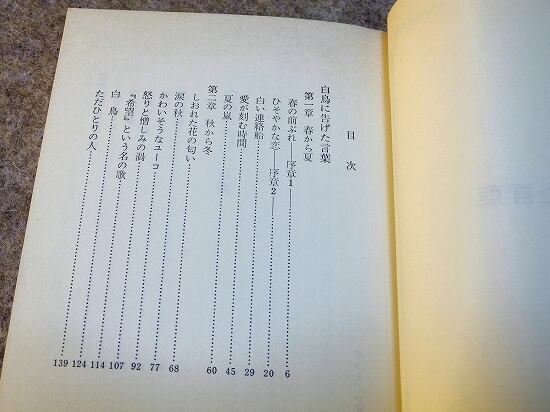 目次
白鳥に告げた言葉
第一章 春から夏
春の前ぶれ――序章1――……6
ひそやかな恋――序章2――……20
白い連絡船……29
愛が刻む時間……45
夏の嵐……60
第二章 秋から冬
しおれた花の匂い……68
涙の秋……77
かわいそうなユーコ……92
怒りと憎しみの渦……107
『希望』という名の歌……114
白鳥……124
ただひとりの人……139